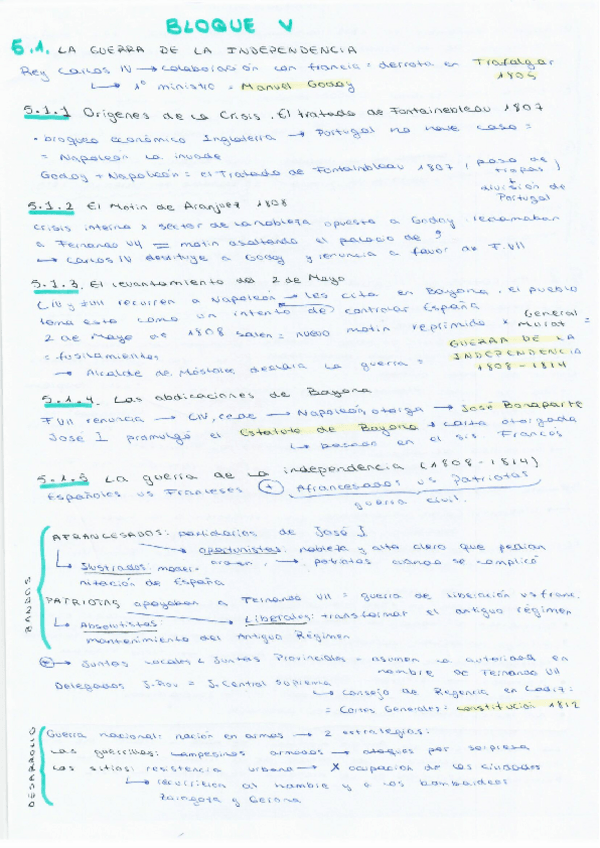 BLOQUE V
5.1. LA GUERRA DE LA INDEPENDENCIA
Rey Carlos IV → colaboración con Francia = derrota en Trafalgar 1805
↳ 1º ministro = Manuel Godoy
5.1.1 Orígenes de la Crisis. El tratado de Fontainebleau 1807
• bloqueo económico Inglaterra → Portugal no hace caso =
= Napoleón la invade
Godoy + Napoleón = el Tratado de Fontainbleau 1807 (paso de tropas + división de Portugal)
5.1.2 El Motín de Aranjuez 1808
Crisis interna x sector de la nobleza opuesto a Godoy
a Fernando = motín asaltando el palacio de
↳ Carlos IV destituye a Godoy y renuncia a favor de F. VII
5.1.3. El levantamiento de 2 de Mayo
CIV y FVII recurren a Napoleón → les cita en Bayona, el pueblo
toma esto como un intento de controlar España
2 de Mayo de 1808 salen = nuevo motín reprimido x General Murat =
= fusilamientos
→ Alcalde de Móstoles declara la guerra = GUERRA DE LA INDEPENDENCIA 1808-1814
5.1.4. Las abdicaciones de Bayona
FVII renuncia → CIV, cede → Napoleón, otorga → José Bonaparte
José I promulgó el Estatuto de Bayona + carta otorgada
↳ basado en el sis. Francés
5.1.5 La guerra de la independencia (1808-1814)
Españoles vs Franceses + Afrancesados vs Patriotas
guerra civil.
BANDOS
AFRANCESADOS: partidarios de José I
oportunistas: nobleza y alto clero que pedían
↳ Ilustrados: moder- orden, → patriotas cuando se complicó
nización de España
PATRIOTAS apoyaban a Fernando VII = guerra de liberación vs franc.
↳ Absolutistas: Liberales: transformar el antiguo régimen
mantenimiento del Antiguo Régimen
→ Juntas Locales < Juntas Provinciales = asumen la autoridad en nombre de Fernando VII
Delegados J. Prov = J. Central Suprema
↳ Consejo de Regencia en Cádiz =
= Cortes Generales: constitución 1812
DESARROLLO
Guerra nacional: nación en armas → 2 estrategias:
Las guerrillas: campesinos armados → ataques por sorpresa
Los sitios: resistencia urbana → x ocupación de las ciudades
↳ recurrieron al hambre y a los bombardeos
Zaragoza y Gerona